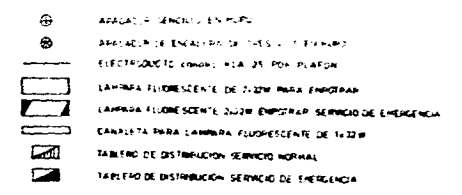 APAGADOR SENCILLO EN MURO
APAGADOR DE ESCALERA DE TRES EN MURO
ELECTRODUCTO POR PLAFON
LAMPARA FLUORESCENTE DE 2x32W PARA EMPOTRAR
LAMPARA FLUORESCENTE 2x32W EMPOTRAR SERVICIO DE EMERGENCIA
CANALETA PARA LAMPARA FLUORESCENTE DE 1x32W
TABLERO DE DISTRIBUCION SERVICIO NORMAL
TABLERO DE DISTRIBUCION SERVICIO DE EMERGENCIA